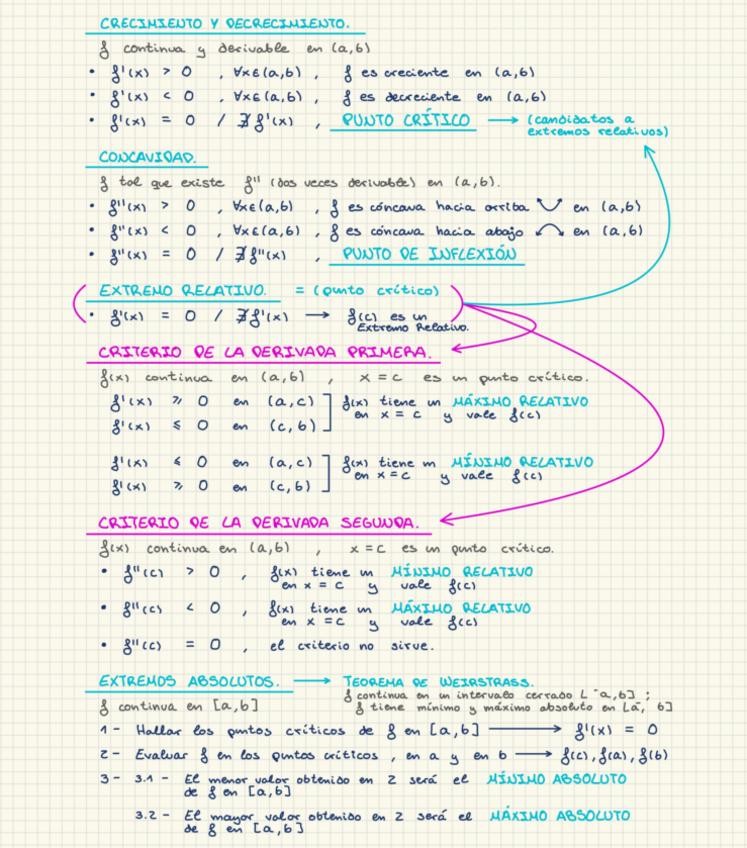 CRECIMIENTO Y DECRECIMIENTO.
f continua y derivable en (a,b)
• f'(x) > 0 , ∀x∈(a,b) , f es creciente en (a,b)
• f'(x) < 0 , ∀x∈(a,b) , f es decreciente en (a,b)
• f'(x) = 0 / ∄ f'(x) , PUNTO CRÍTICO → (candidatos a
extremos relativos)
CONCAVIDAD.
f tal que existe f'' (dos veces derivable) en (a,b).
• f''(x) > 0 , ∀x∈(a,b) , f es cóncava hacia arriba en (a,b)
• f''(x) < 0 , ∀x∈(a,b) , f es cóncava hacia abajo en (a,b)
• f''(x) = 0 / ∄ f''(x) , PUNTO DE INFLEXIÓN
EXTREMO RELATIVO. = (punto crítico)
• f'(x) = 0 / ∄ f'(x) → f(c) es un
Extremo Relativo.
CRITERIO DE LA DERIVADA PRIMERA.
f(x) continua en (a,b) , x = c es un punto crítico.
f'(x) ≥ 0 en (a,c) ] f(x) tiene un MÁXIMO RELATIVO
en x = c y vale f(c)
f'(x) ≤ 0 en (c,b)
f'(x) ≤ 0 en (a,c) ] f(x) tiene un MÍNIMO RELATIVO
en x = c y vale f(c)
f'(x) ≥ 0 en (c,b)
CRITERIO DE LA DERIVADA SEGUNDA.
f(x) continua en (a,b) , x = c es un punto crítico.
• f''(c) > 0 , f(x) tiene un MÍNIMO RELATIVO
en x = c y vale f(c)
• f''(c) < 0 , f(x) tiene un MÁXIMO RELATIVO
en x = c y vale f(c)
• f''(c) = 0 , el criterio no sirve.
EXTREMOS ABSOLUTOS. → TEOREMA DE WEIRSTRASS.
f continua en un intervalo cerrado [a,b] ;
f continua en [a,b] f tiene mínimo y máximo absoluto en [a, b]
1 - Hallar los puntos críticos de f en [a,b] → f'(x) = 0
2 - Evaluar f en los puntos críticos , en a y en b → f(c), f(a), f(b)
3 - 3.1 - El menor valor obtenido en 2 será el MÍNIMO ABSOLUTO
de f en [a,b]
3.2 - El mayor valor obtenido en 2 será el MÁXIMO ABSOLUTO
de f en [a,b]